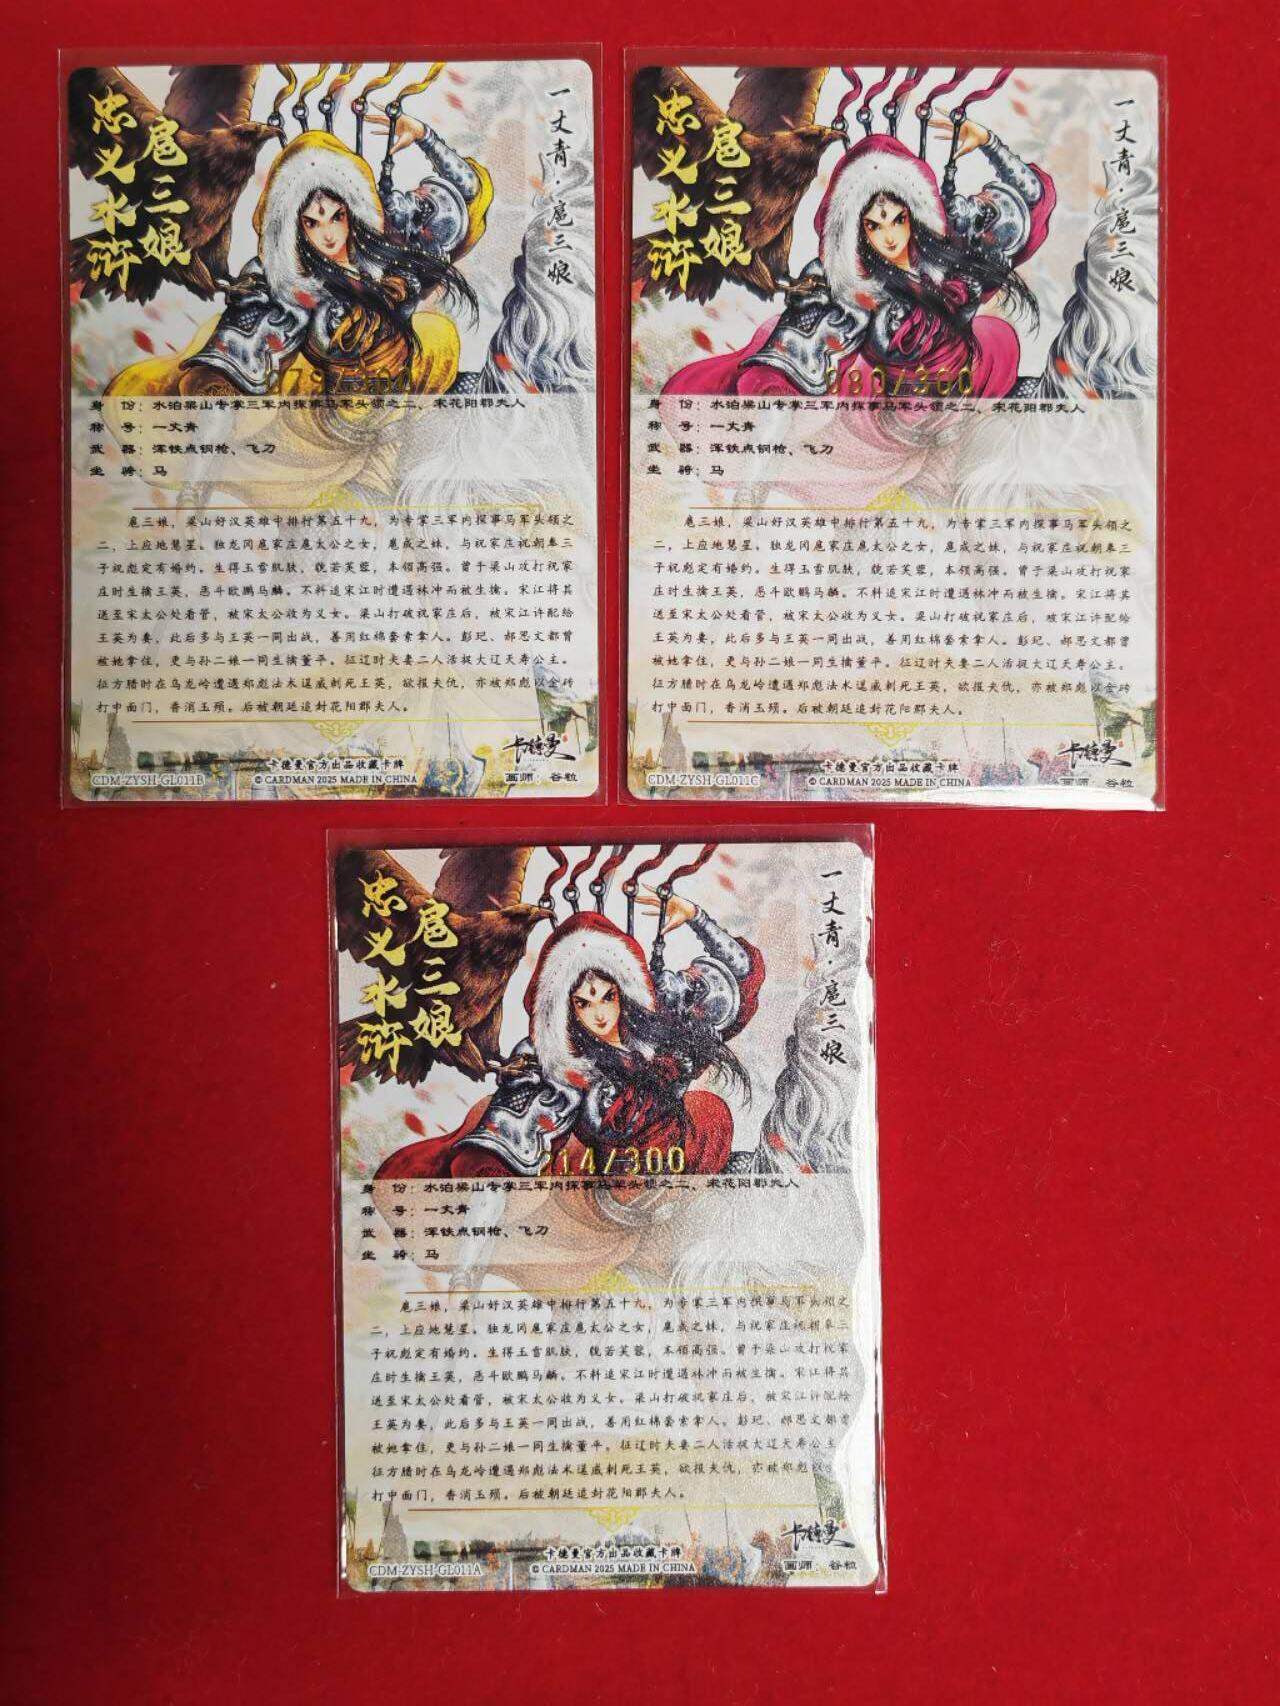 忠义水浒
扈三娘
一丈青·扈三娘
079/300
身 份：水泊梁山专掌三军内探事马军头领之二、宋花阳郡夫人
称 号：一丈青
武 器：浑铁点钢枪、飞刀
坐 骑：马
扈三娘，梁山好汉英雄中排行第五十九，为专掌三军内探事马军头领之
二，上应地慧星。独龙冈扈家庄扈太公之女，扈成之妹，与祝家庄祝朝奉三
子祝彪定有婚约。生得玉雪肌肤，貌若芙蓉，本领高强。曾于梁山攻打祝家
庄时生擒王英，恶斗欧鹏马麟。不料追宋江时遭遇林冲而被生擒。宋江将其
送至宋太公处看管，被宋太公收为义女。梁山打破祝家庄后，被宋江许配给
王英为妻，此后多与王英一同出战，善用红棉套索拿人。彭玘、郝思文都曾
被她拿住，更与孙二娘一同生擒董平。征辽时夫妻二人活捉大辽天寿公主。
征方腊时在乌龙岭遭遇郑彪法术逞威刺死王英，欲报夫仇，亦被郑彪以金砖
打中面门，香消玉殒。后被朝廷追封花阳郡夫人。
卡德曼
CDM-ZYSH-GL011B
卡德曼官方出品收藏卡牌
© CARDMAN 2025 MADE IN CHINA
画师：谷粒
忠义水浒
扈三娘
一丈青·扈三娘
080/300
身 份：水泊梁山专掌三军内探事马军头领之二、宋花阳郡夫人
称 号：一丈青
武 器：浑铁点钢枪、飞刀
坐 骑：马
扈三娘，梁山好汉英雄中排行第五十九，为专掌三军内探事马军头领之
二，上应地慧星。独龙冈扈家庄扈太公之女，扈成之妹，与祝家庄祝朝奉三
子祝彪定有婚约。生得玉雪肌肤，貌若芙蓉，本领高强。曾于梁山攻打祝家
庄时生擒王英，恶斗欧鹏马麟。不料追宋江时遭遇林冲而被生擒。宋江将其
送至宋太公处看管，被宋太公收为义女。梁山打破祝家庄后，被宋江许配给
王英为妻，此后多与王英一同出战，善用红棉套索拿人。彭玘、郝思文都曾
被她拿住，更与孙二娘一同生擒董平。征辽时夫妻二人活捉大辽天寿公主。
征方腊时在乌龙岭遭遇郑彪法术逞威刺死王英，欲报夫仇，亦被郑彪以金砖
打中面门，香消玉殒。后被朝廷追封花阳郡夫人。
卡德曼
CDM-ZYSH-GL011C
卡德曼官方出品收藏卡牌
© CARDMAN 2025 MADE IN CHINA
画师：谷粒
忠义水浒
扈三娘
一丈青·扈三娘
214/300
身 份：水泊梁山专掌三军内探事马军头领之二、宋花阳郡夫人
称 号：一丈青
武 器：浑铁点钢枪、飞刀
坐 骑：马
扈三娘，梁山好汉英雄中排行第五十九，为专掌三军内探事马军头领之
二，上应地慧星。独龙冈扈家庄扈太公之女，扈成之妹，与祝家庄祝朝奉三
子祝彪定有婚约。生得玉雪肌肤，貌若芙蓉，本领高强。曾于梁山攻打祝家
庄时生擒王英，恶斗欧鹏马麟。不料追宋江时遭遇林冲而被生擒。宋江将其
送至宋太公处看管，被宋太公收为义女。梁山打破祝家庄后，被宋江许配给
王英为妻，此后多与王英一同出战，善用红棉套索拿人。彭玘、郝思文都曾
被她拿住，更与孙二娘一同生擒董平。征辽时夫妻二人活捉大辽天寿公主
征方腊时在乌龙岭遭遇郑彪法术逞威刺死王英，欲报夫仇，亦被郑彪以
打中面门，香消玉殒。后被朝廷追封花阳郡夫人。
卡德曼
CDM-ZYSH-GL011A
卡德曼官方出品收藏卡牌
© CARDMAN 2025 MADE IN CHINA
画师：谷粒